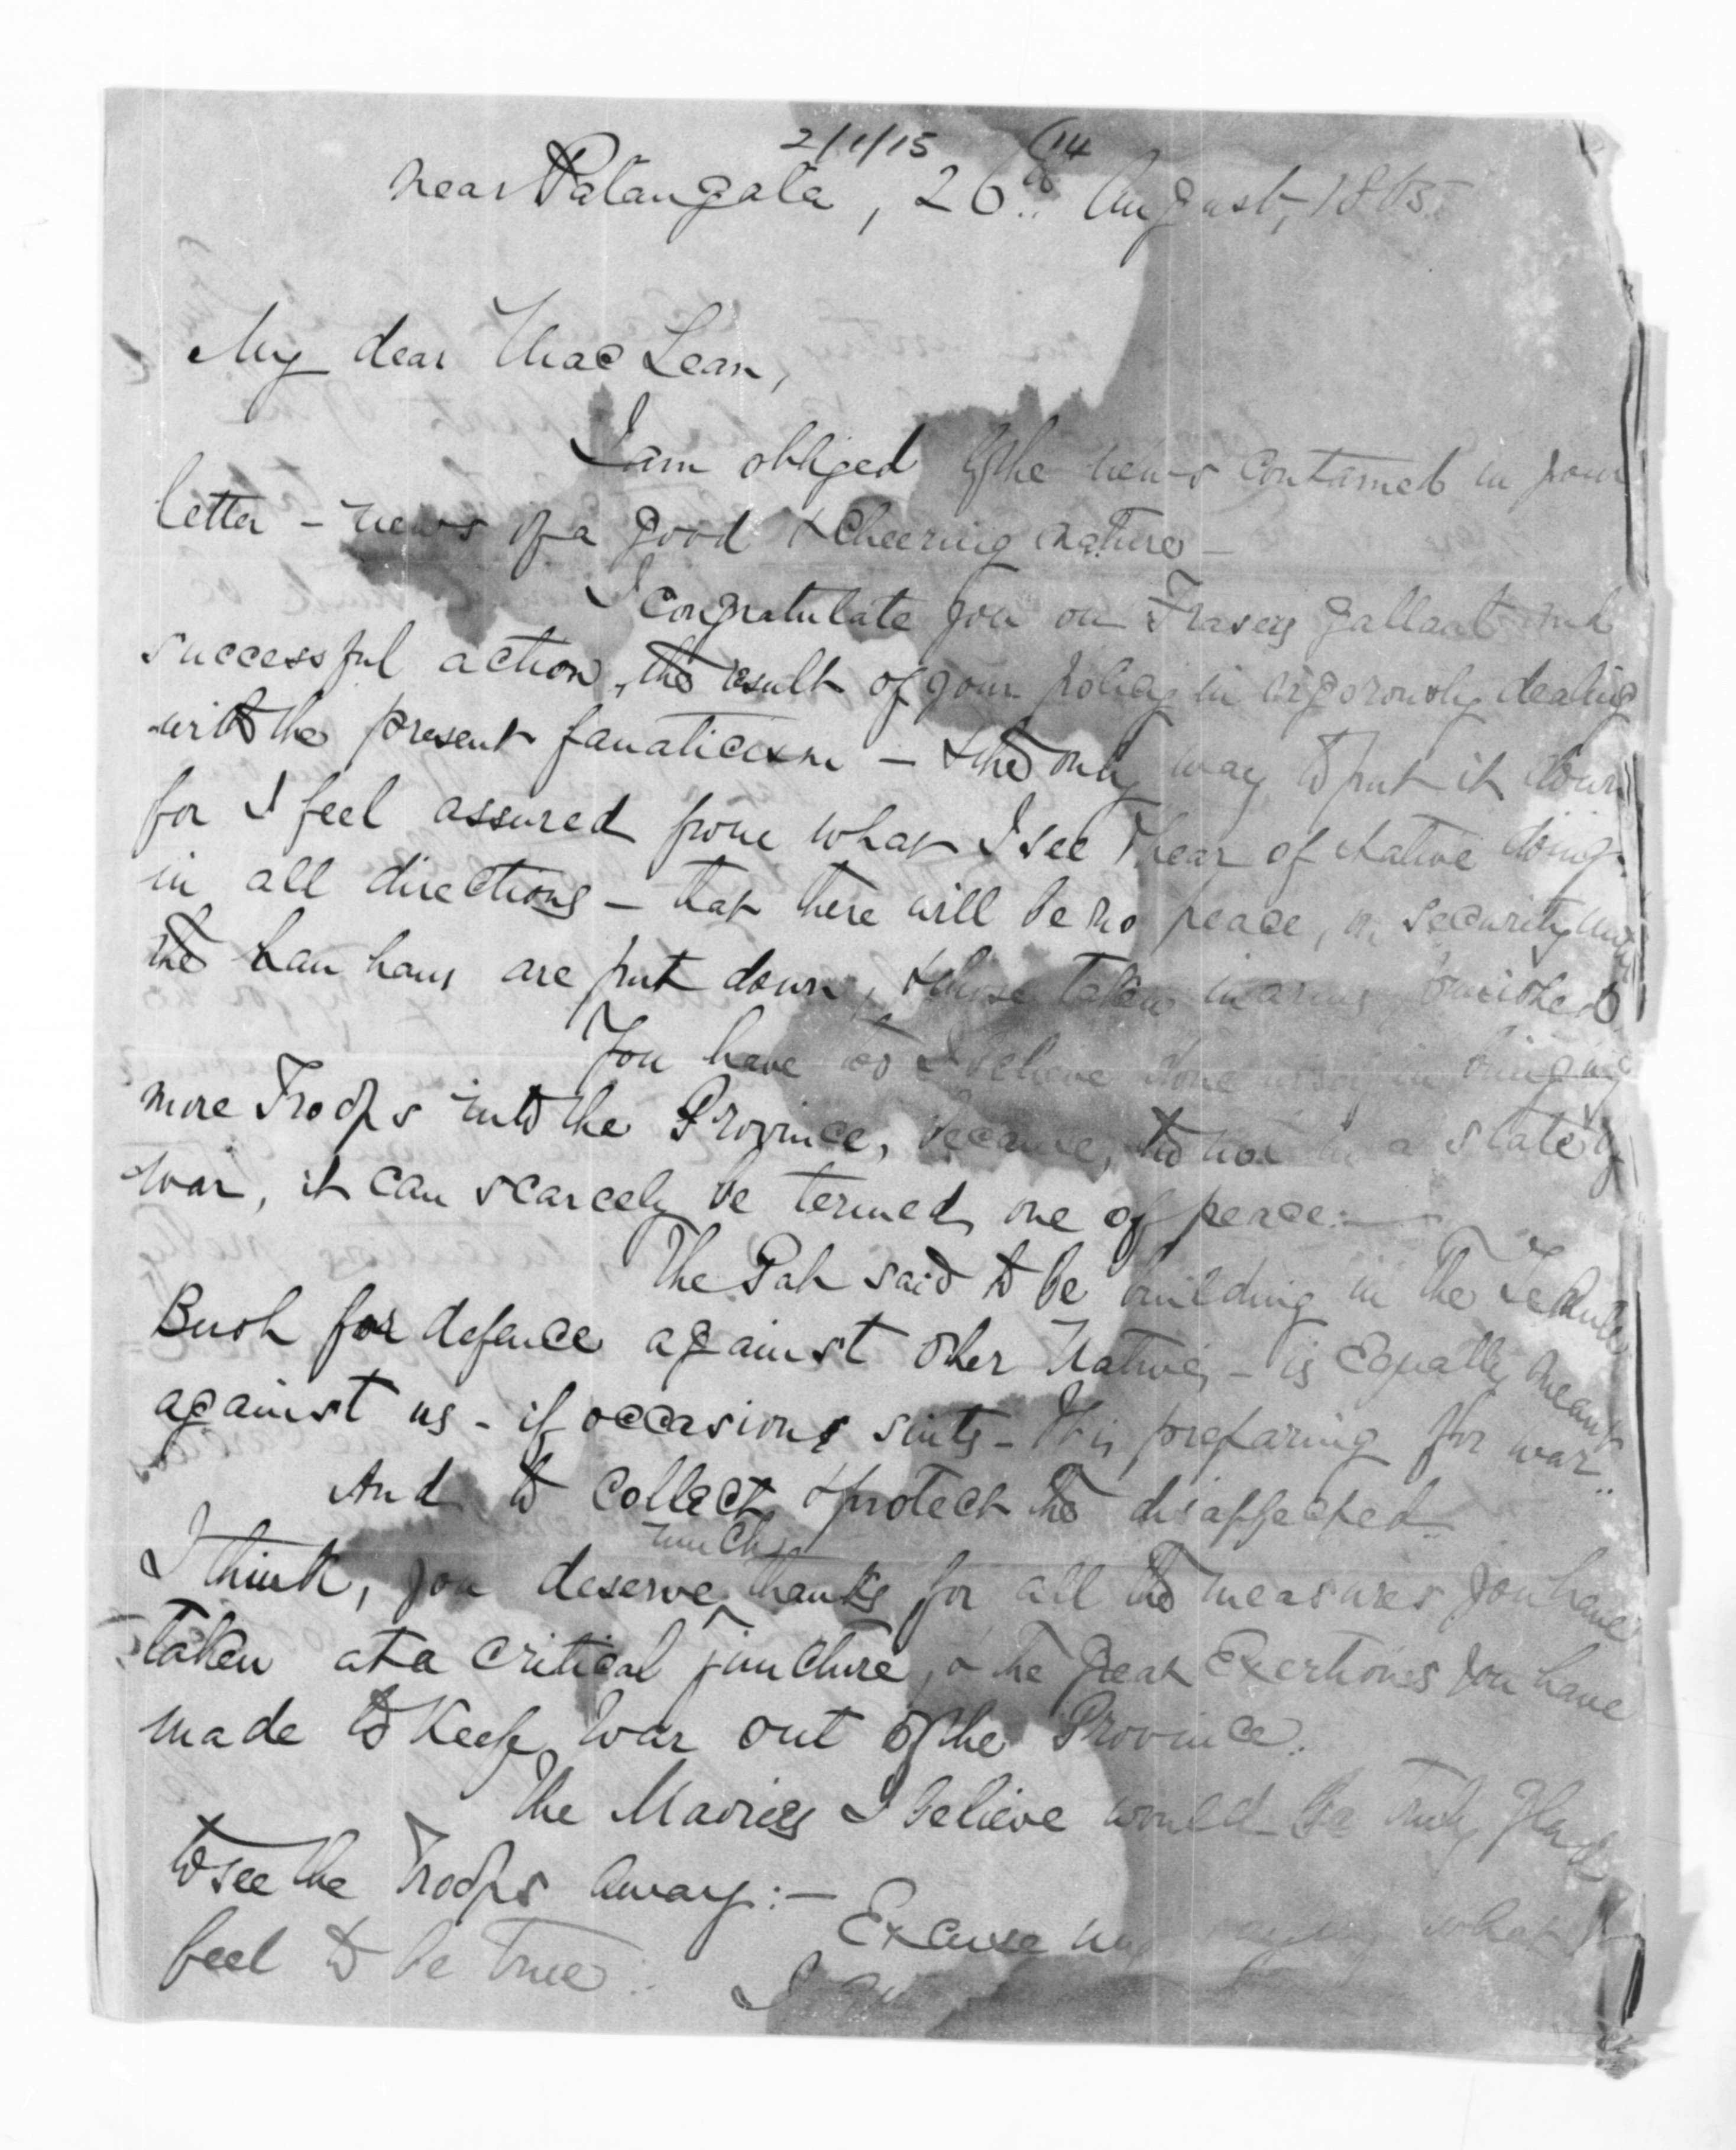 2/1/15 (14
near Patangata, 26th August, 1865.
My dear MacLean,
I am obliged by the news contained in your
letter - news of a good & cheering nature -
I congratulate you on Frasers gallant and
successful action, the result of your policy in vigorously dealing
with the present fanaticism - & the only way to put it down
for I feel assured from what I see & hear of Native doings
in all directions - that there will be no peace, or security until
the hau haus are put down, & those taken in arms punished
You have too I believe done wisely in bringing
more Troops into the Province, because, tho not in a state of
war, it can scarcely be termed one of peace:-
The Pah said to be building in the Te Aute
Bush for defence against other Natives - is Equally meant
against us - if occasions suits - It is preparing for war..
And to collect & protect the disaffected
much
I think, you deserve thanks for all the measures you have
taken at a critical juncture, & the great Exertions you have
made to keep war out of the Province.
The Maories I believe would be truly glad
to see the Troops away:-
Excuse my saying what I
feel to be true.. I am